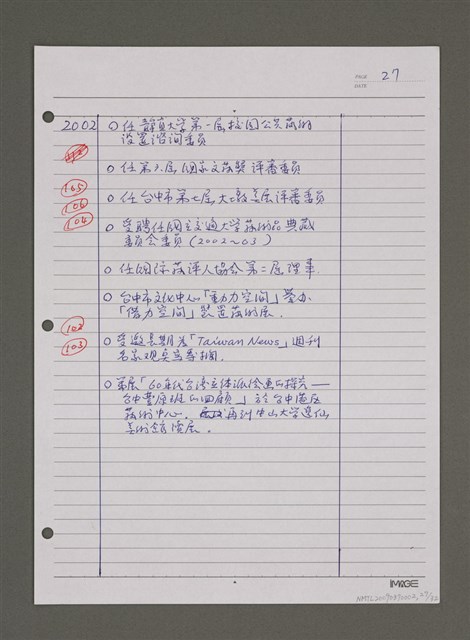 PAGE 27
DATE
2002 ○任靜宜大學第一屆校園公共藝術
設置諮詢委員
○任第六屆國家文藝獎評審委員
105 ○任台中市第七屆大墩美展評審委員
106
104 ○受聘任國立交通大學藝術品典藏
委員會委員(2002~03)
○任國際藝評人協會第二屆理事
○台中市文化中心「動力空間」舉辦
「借力空間」裝置藝術展.
102 ○受邀長期為「Taiwan News」週刊
103 名家觀奕寫專欄.
○策展「60年代台灣立體派繪畫的探究——
台中豐原班的回顧」於台中港區
藝術中心. 再到中山大學逸仙
美術館續展.
IMAGE
NMTL20090890002_27/32